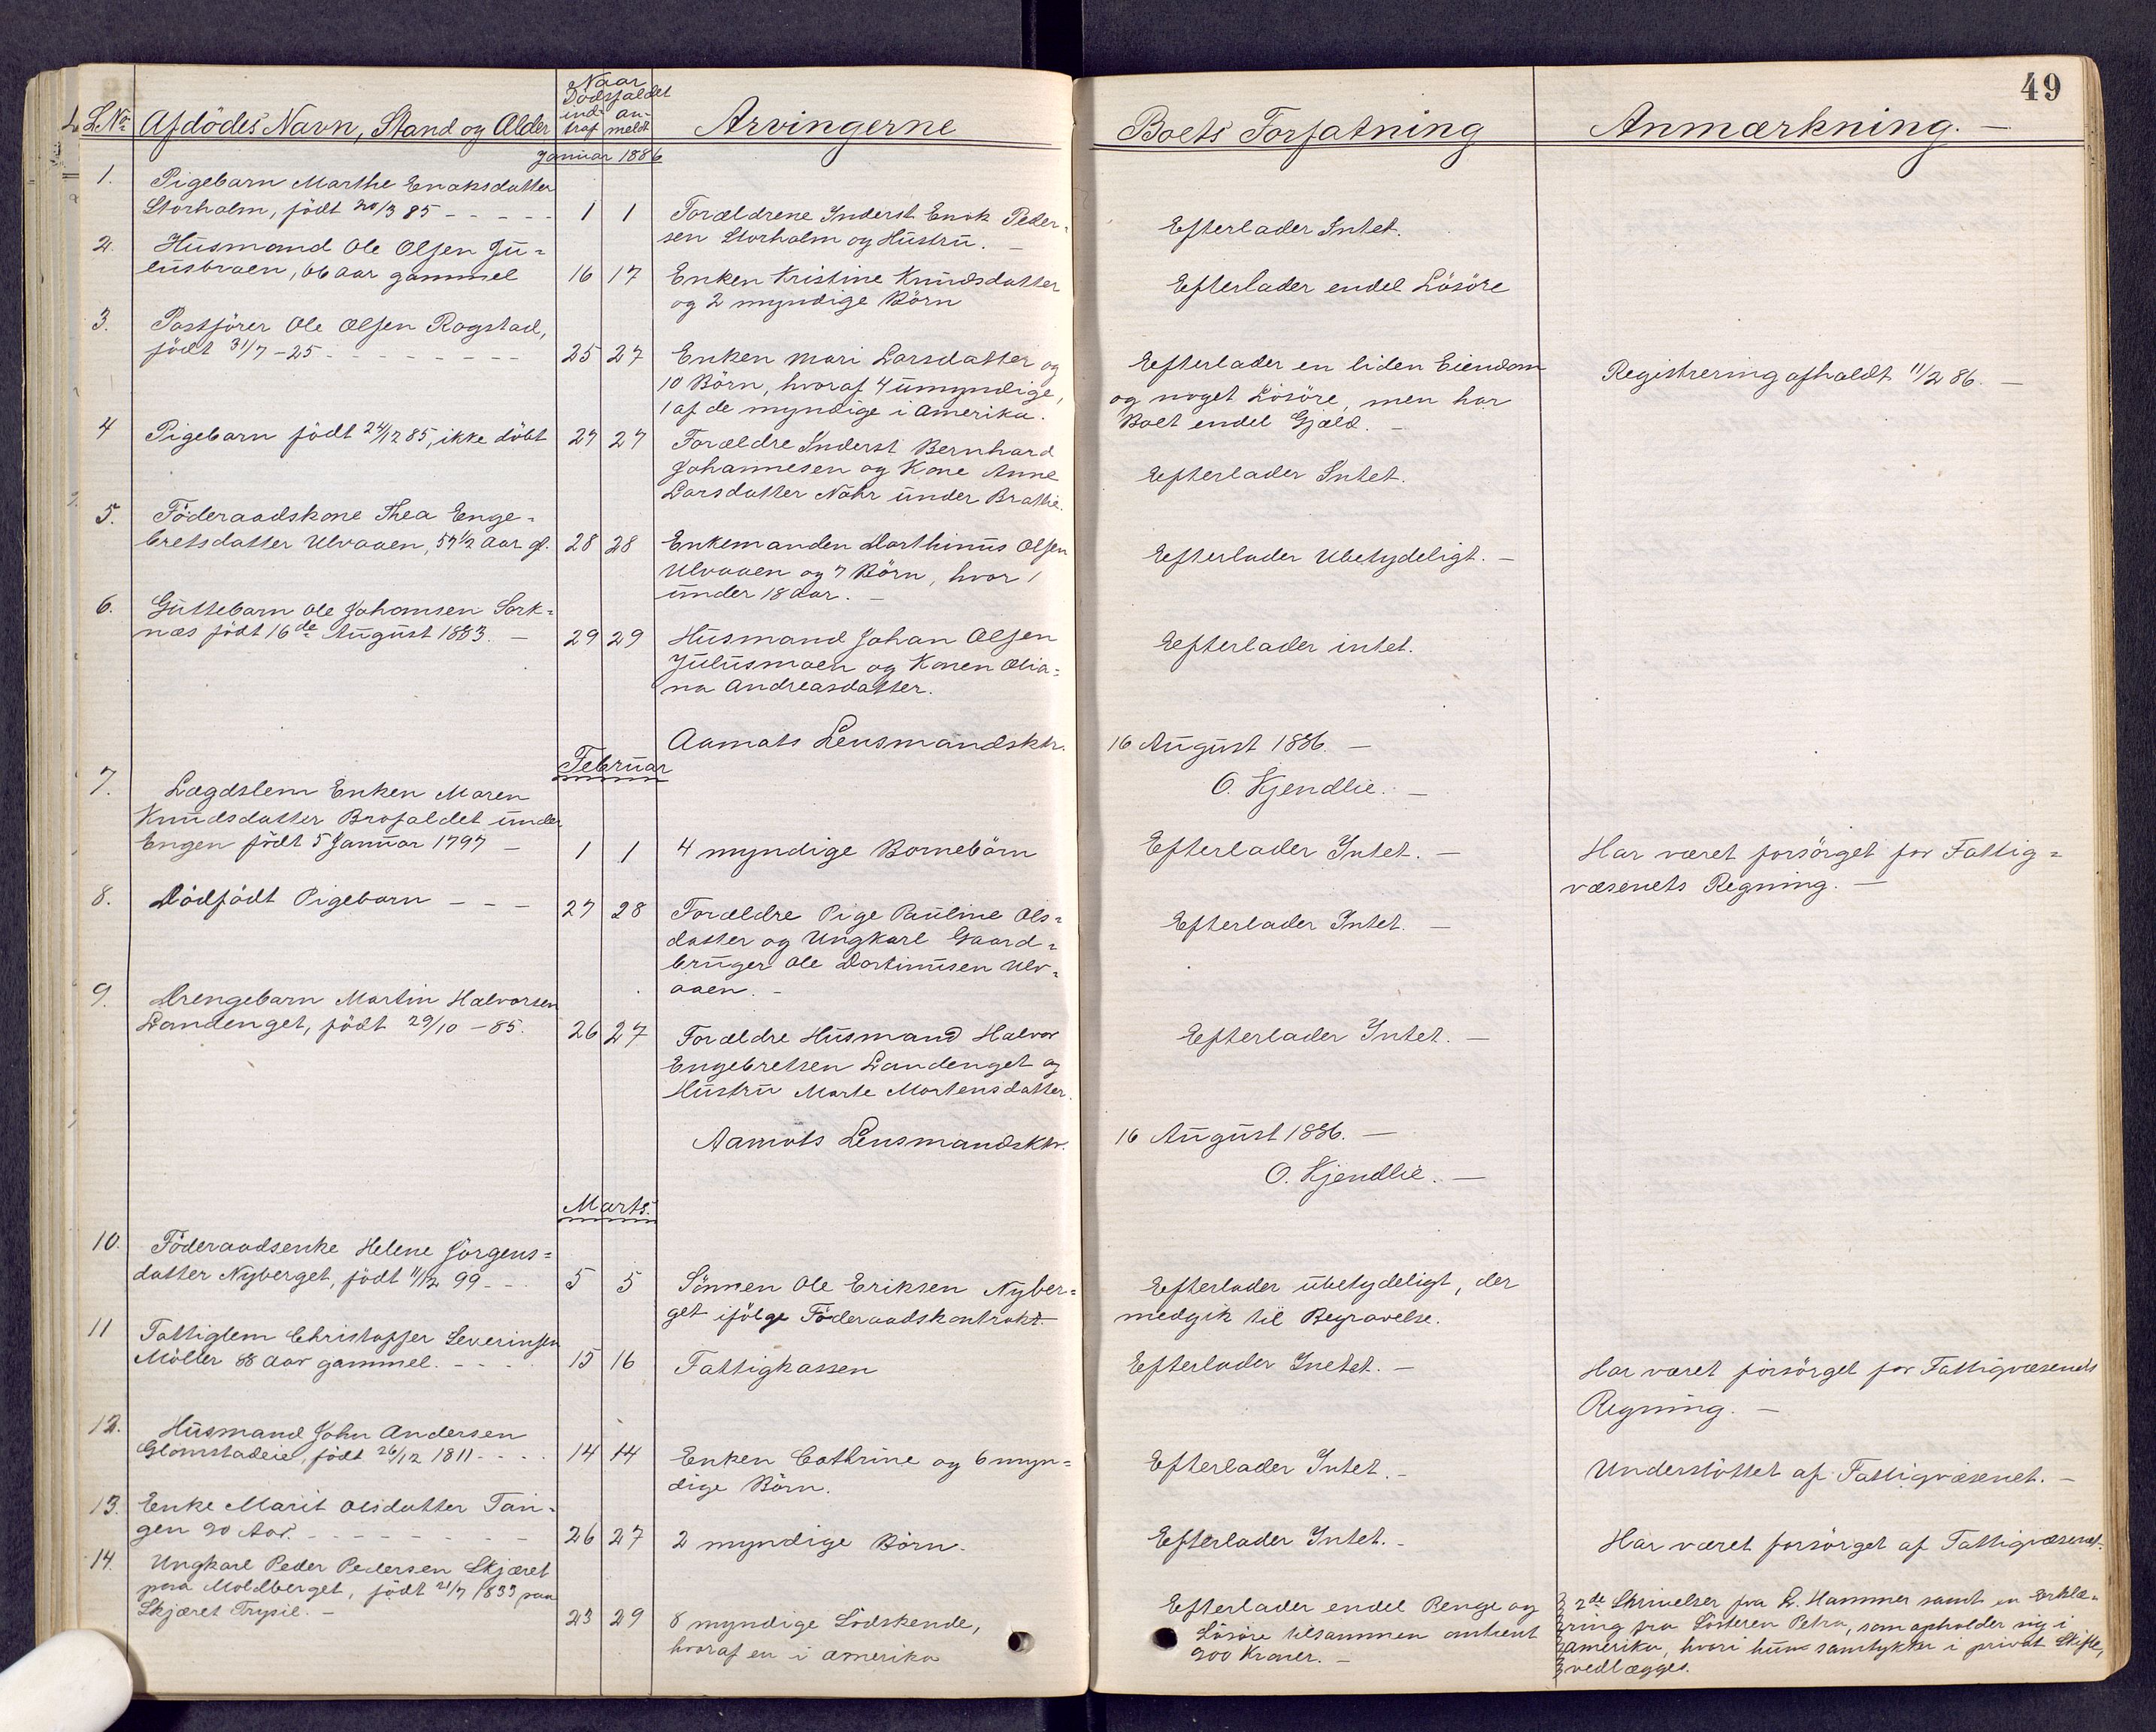 49
L.No Afdödes Navn, Stand og Alder
Naar
Dödsfaldet
ind- an-
traf meldt
Arvingerne
Boets Forfatning
Anmærkning. —
Januar 1886
1. Pigebarn Marthe Enoksdatter
Storholm, födt 20/3 85 - - - - - 1 1 Forældrene Inderst Enok Peder-
sen Storholm og Hustru. —
Efterlader Intet.
2. Husmand Ole Olsen Ju-
lusbraen, 66 aar gammel 16 17 Enken Kristine Knudsdatter
og 2 myndige Börn
Efterlader endel Lösöre
3. Postförer Ole Olsen Rogstad,
födt 31/7 - 25 - - - - - - - - - 25 27 Enken Mari Larsdatter og
10 Börn, hvoraf 4 umyndige,
1 af de myndige i Amerika.
Efterlader en liden Eiendom
og noget Lösöre, men har
Boet endel Gjæld. —
Registrering afholdt 11/2 86. —
4 Pigebarn födt 24/12 85, ikke döbt 27 27 Forældre Inderst Bernhard
Johannesen og Kone Anne
Larsdatter Nohr under Brathe.
Efterlader Intet.
5. Föderaadskone Thea Enge-
bretsdatter Ulvaaen, 57 1/2 Aar gl. 28 28 Enkemanden Dorthinus Olsen
Ulvaaen og 7 Börn, hvor 1
under 18 Aar. —
Efterlader Ubetydeligt. —
6. Guttebarn Ole Johansen Sork-
næs födt 16de August 1883. — 29 29 Husmand Johan Olsen
Julusmoen og Konen Olia-
na Andreasdatter.
Efterlader intet.
Aamots Lensmandsktr. 16 August 1886. —
O. Kjendlie. —
Februar
7. Lægdslem Enken Maren
Knudsdatter Brofaldet under
Engen födt 5 Januar 1797 — 1 1 4 myndige Bornebörn
Efterlader Intet. —
Har været forsörget for Fattig-
væsenets Regning. —
8. Dödfödt Pigebarn - - - 27 28 Forældre Pige Pauline Ols-
datter og Ungkarl Gaard-
bruger Ole Dortinusen Ulv-
aaen. —
Efterlader Intet. —
9. Drengebarn Martin Halvorsen
Landenget, födt 29/10 - 85. 26 27 Forældre Husmand Halvor
Engebretsen Landenget og
Hustru Marte Mortensdatter.
Efterlader Intet. —
Aamots Lensmandsktr. 16 August 1886. —
O. Kjendlie. —
Marts.
10. Föderaadsenke Helene Jörgens-
datter Nyberget, födt 11/12 99 - - 5 5 Sönnen Ole Eriksen Nyber-
get ifölge Föderaadskontrakt.
Efterlader ubetydeligt, der
medgik til Begravelse.
11 Fattiglem Christopfer Severinsen
Möller 88 Aar gammel. - - - - 15 16 Fattigkassen
Efterlader Inetet. —
Har været forsörget for Fattigvæsenets
Regning. —
12. Husmand John Andersen
Glomstadeie, födt 26/12 1811 - - - - 14 14 Enken Cathrine og 6 myn-
dige Börn.
Efterlader Intet. —
Understöttet af Fattigvæsenet. —
13. Enke Marit Olsdatter Tan-
gen 90 Aar. - - - - - - - - 26 27 2 myndige Börn.
Efterlader Intet. —
Har været forsörget af Fattigvæsenet.
14. Ungkarl Peder Pedersen Skjæret
paa Moldberget, födt 21/7 1833 paa
Skjæret Trysil. — 23 29 8 myndige Södskende,
hvoraf en i Amerika
Efterlader endel Penge og
Lösöre tilsammen omtrent
900 Kroner. —
2de Skrivelser fra L. Hammer samt en Erklæ-
ring fra Sösteren Petra, som opholder sig i
Amerika, hvori hun samtykker i privat Skifte,
vedlægges.